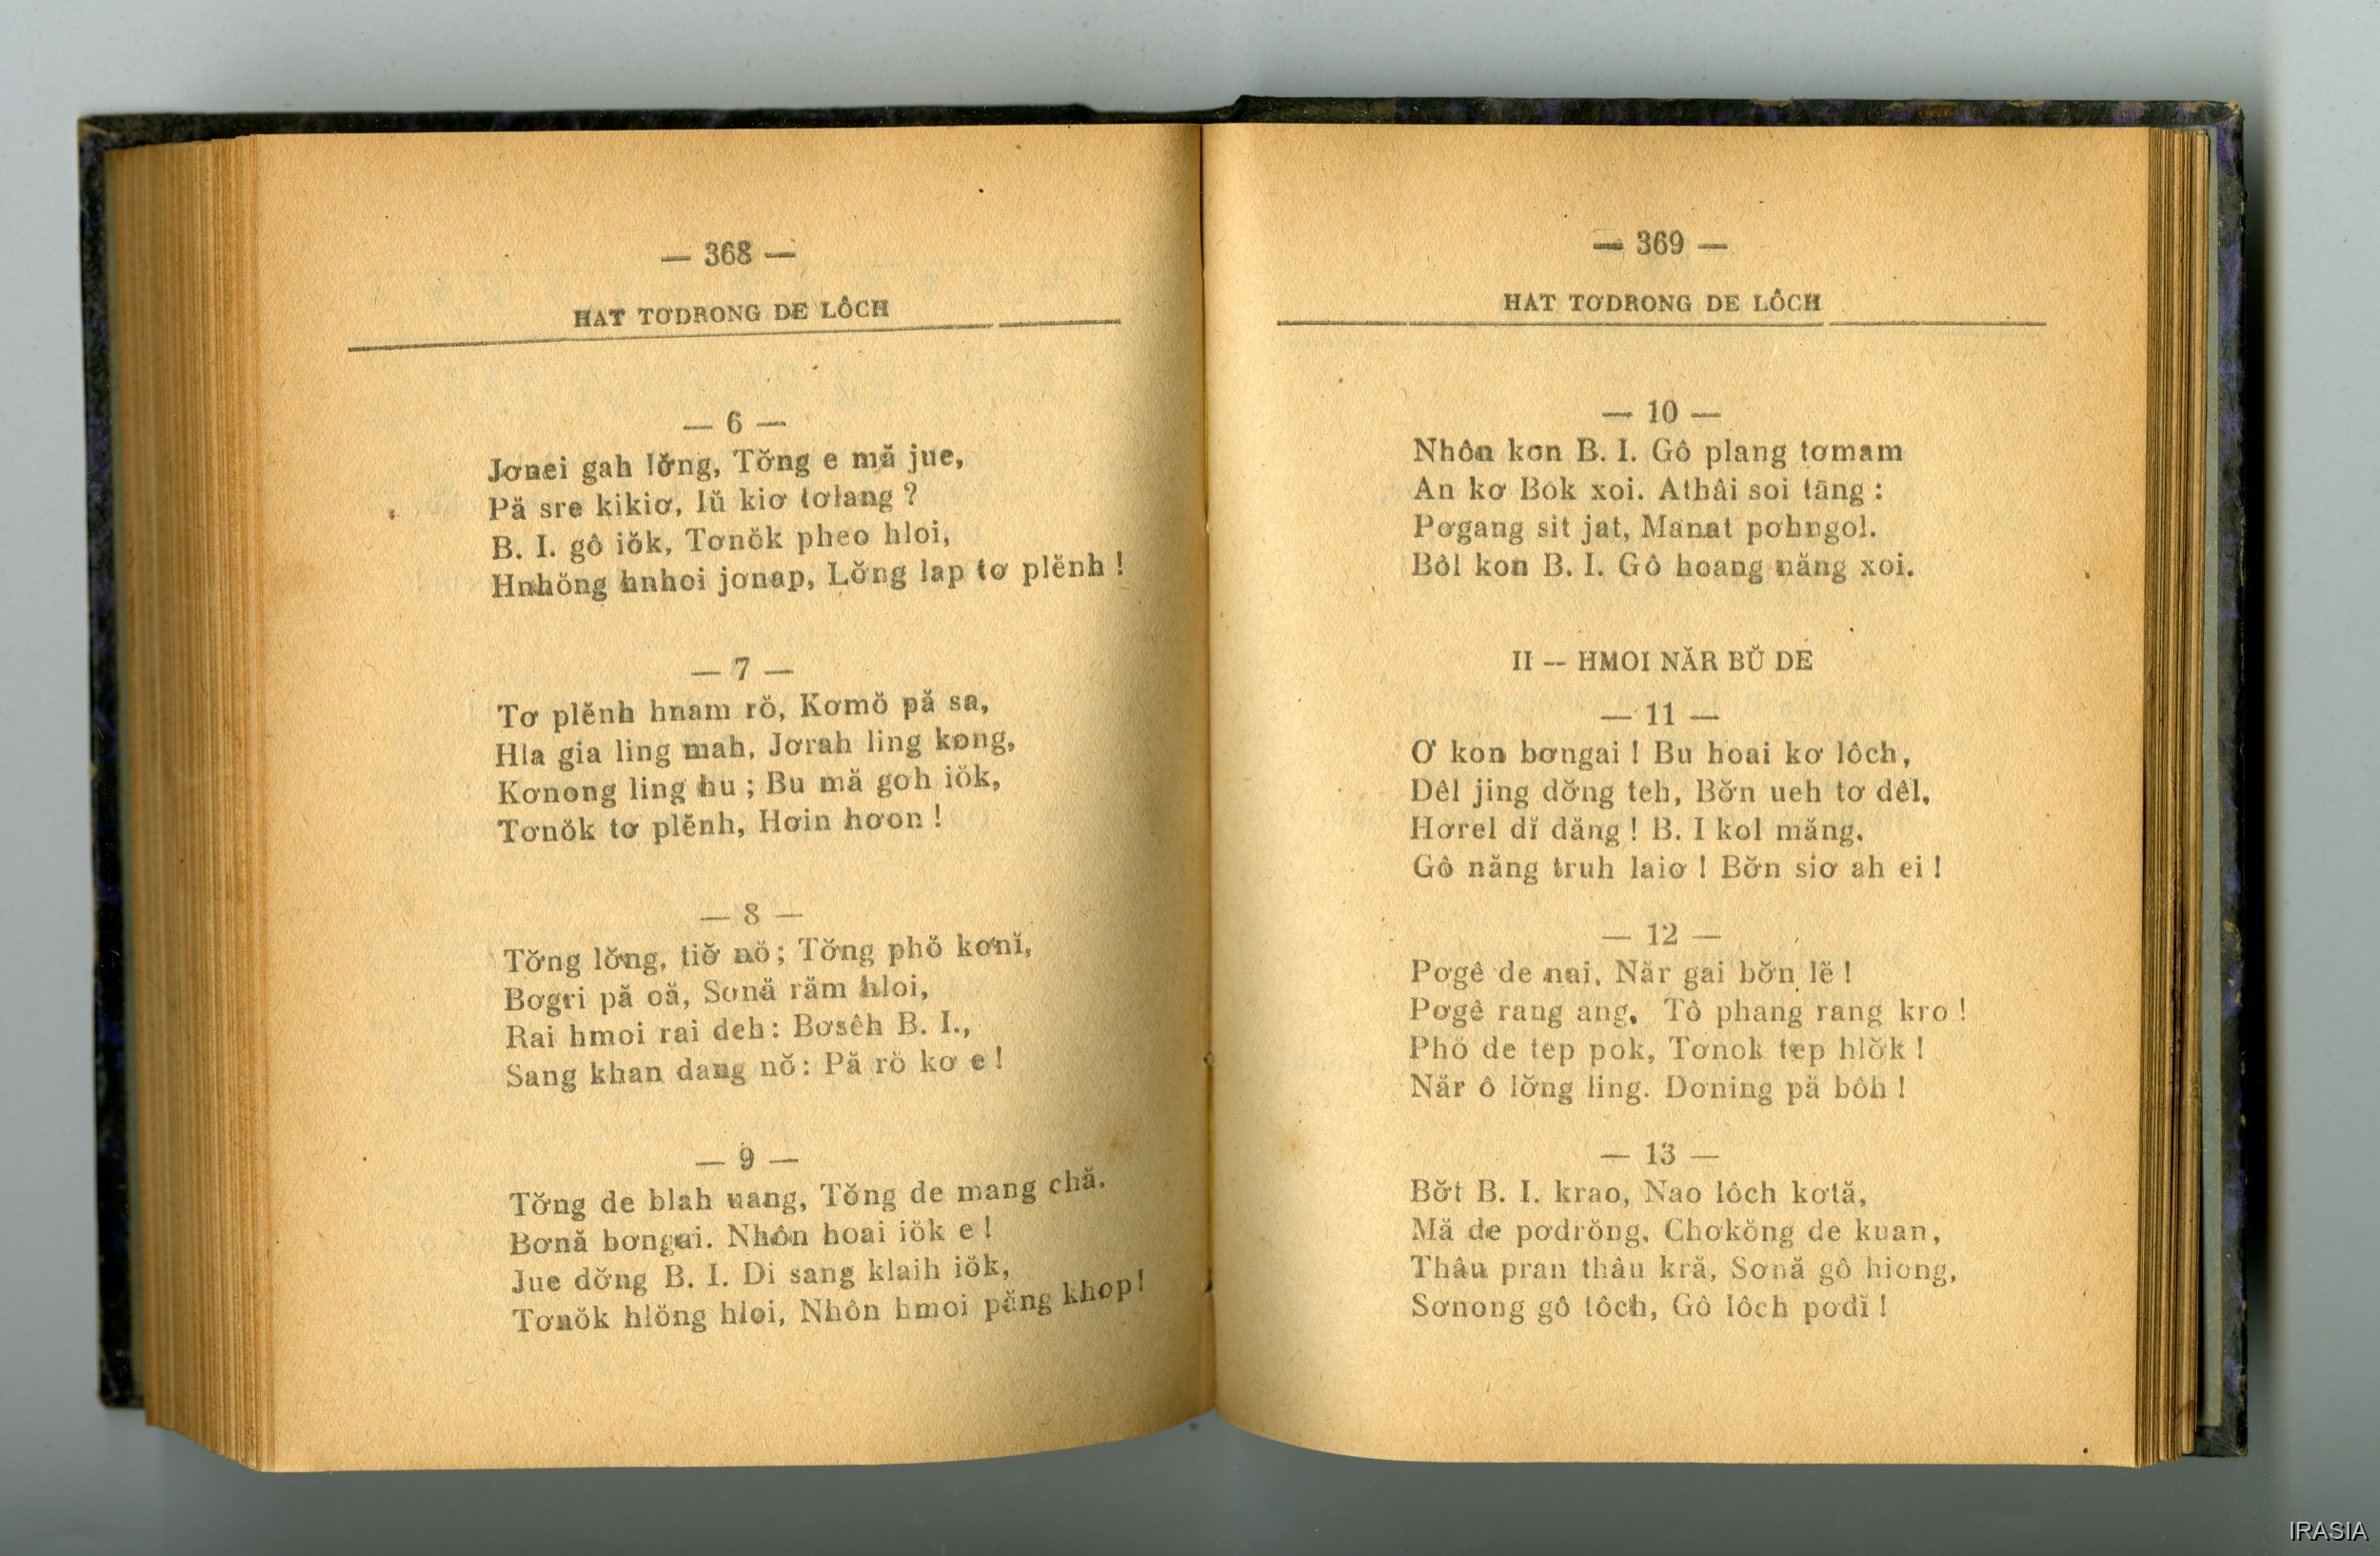 — 368 —
HAT TƠDRONG DE LÔCH
— 6 —
Jơnei gah lơ̆ng, Tơ̆ng e mă jue,
Pă sre kikiơ, Iŭ kiơ tơlang ?
B. I. gô iŏk, Tơnŏk pheo hloi,
Hnhŏng hnhoi jơnap, Lơ̆ng lap tơ plĕnh !
— 7 —
Tơ plĕnh hnam rŏ, Kơmŏ pă sa,
Hla gia ling mah, Jơrah ling kong,
Kơnong ling hu ; Bu mă goh iŏk,
Tơnŏk tơ plĕnh, Hơin hơon !
— 8 —
Tơ̆ng lơ̆ng, tiơ̆ nŏ ; Tơ̆ng phŏ kơnĭ,
Bơgri pă oă, Sơnă răm hloi,
Rai hmoi rai deh : Bơsêh B. I.,
Sang khan dang nŏ : Pă rŏ kơ e !
— 9 —
Tơ̆ng de blah uang, Tơ̆ng de mang chă.
Bơnă bơngai. Nhôn hoai iŏk e !
Jue dơ̆ng B. I. Di sang klaih iŏk,
Tơnŏk hlŏng hloi, Nhôn hmoi păng khop !
— 369 —
HAT TƠDRONG DE LÔCH
— 10 —
Nhôn kon B. I. Gô plang tơmam
An kơ Bŏk xoi. Athâi soi tăng :
Pơgang sit jat, Manat pơhngol.
Bôl kon B. I. Gô hoang năng xoi.
II — HMOI NĂR BŬ DE
— 11 —
Ơ kon bơngai ! Bu hoai kơ lôch,
Dêl jing dơ̆ng teh, Bơ̆n ueh tơ dêl,
Hơrel dĭ dăng ! B. I kol măng.
Gô năng truh laiơ ! Bơ̆n siơ ah ei !
— 12 —
Pơgê de nai. Năr gai bơ̆n lĕ !
Pơgê rang ang. Tô phang rang kro !
Phŏ de tep pok, Tơnok tep hlơ̆k !
Năr ô lơ̆ng ling. Dơning pă bôh !
— 13 —
Bơ̆t B. I. krao, Nao lôch kơtă,
Mă de pơdrŏng, Chơkŏng de kuan,
Thâu pran thâu kră, Sơnă gô hiong,
Sơnong gô tôch, Gô lôch pơdĭ !
IRASIA